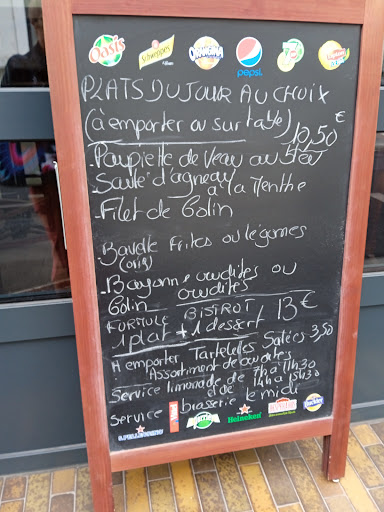 Oasis Schweppes Orangina pepsi 7up
PLATS DU JOUR AU CHOIX
(à emporter ou sur table) 10,50€
-Paupiette de veau au
Sauté d'agneau à la Menthe
-Filet de Colin
Bavette frites ou légumes
-Bayonne crudités ou
Colin crudités
FORMULE BISTROT 13€
1 plat + 1 dessert
A emporter Tartelettes Salées 3,50
Assortiment de crudités
Service limonade de 7h à 11h30
et de 14h à 15h30
Service brasserie le midi
S.PELLEGRINO Heineken